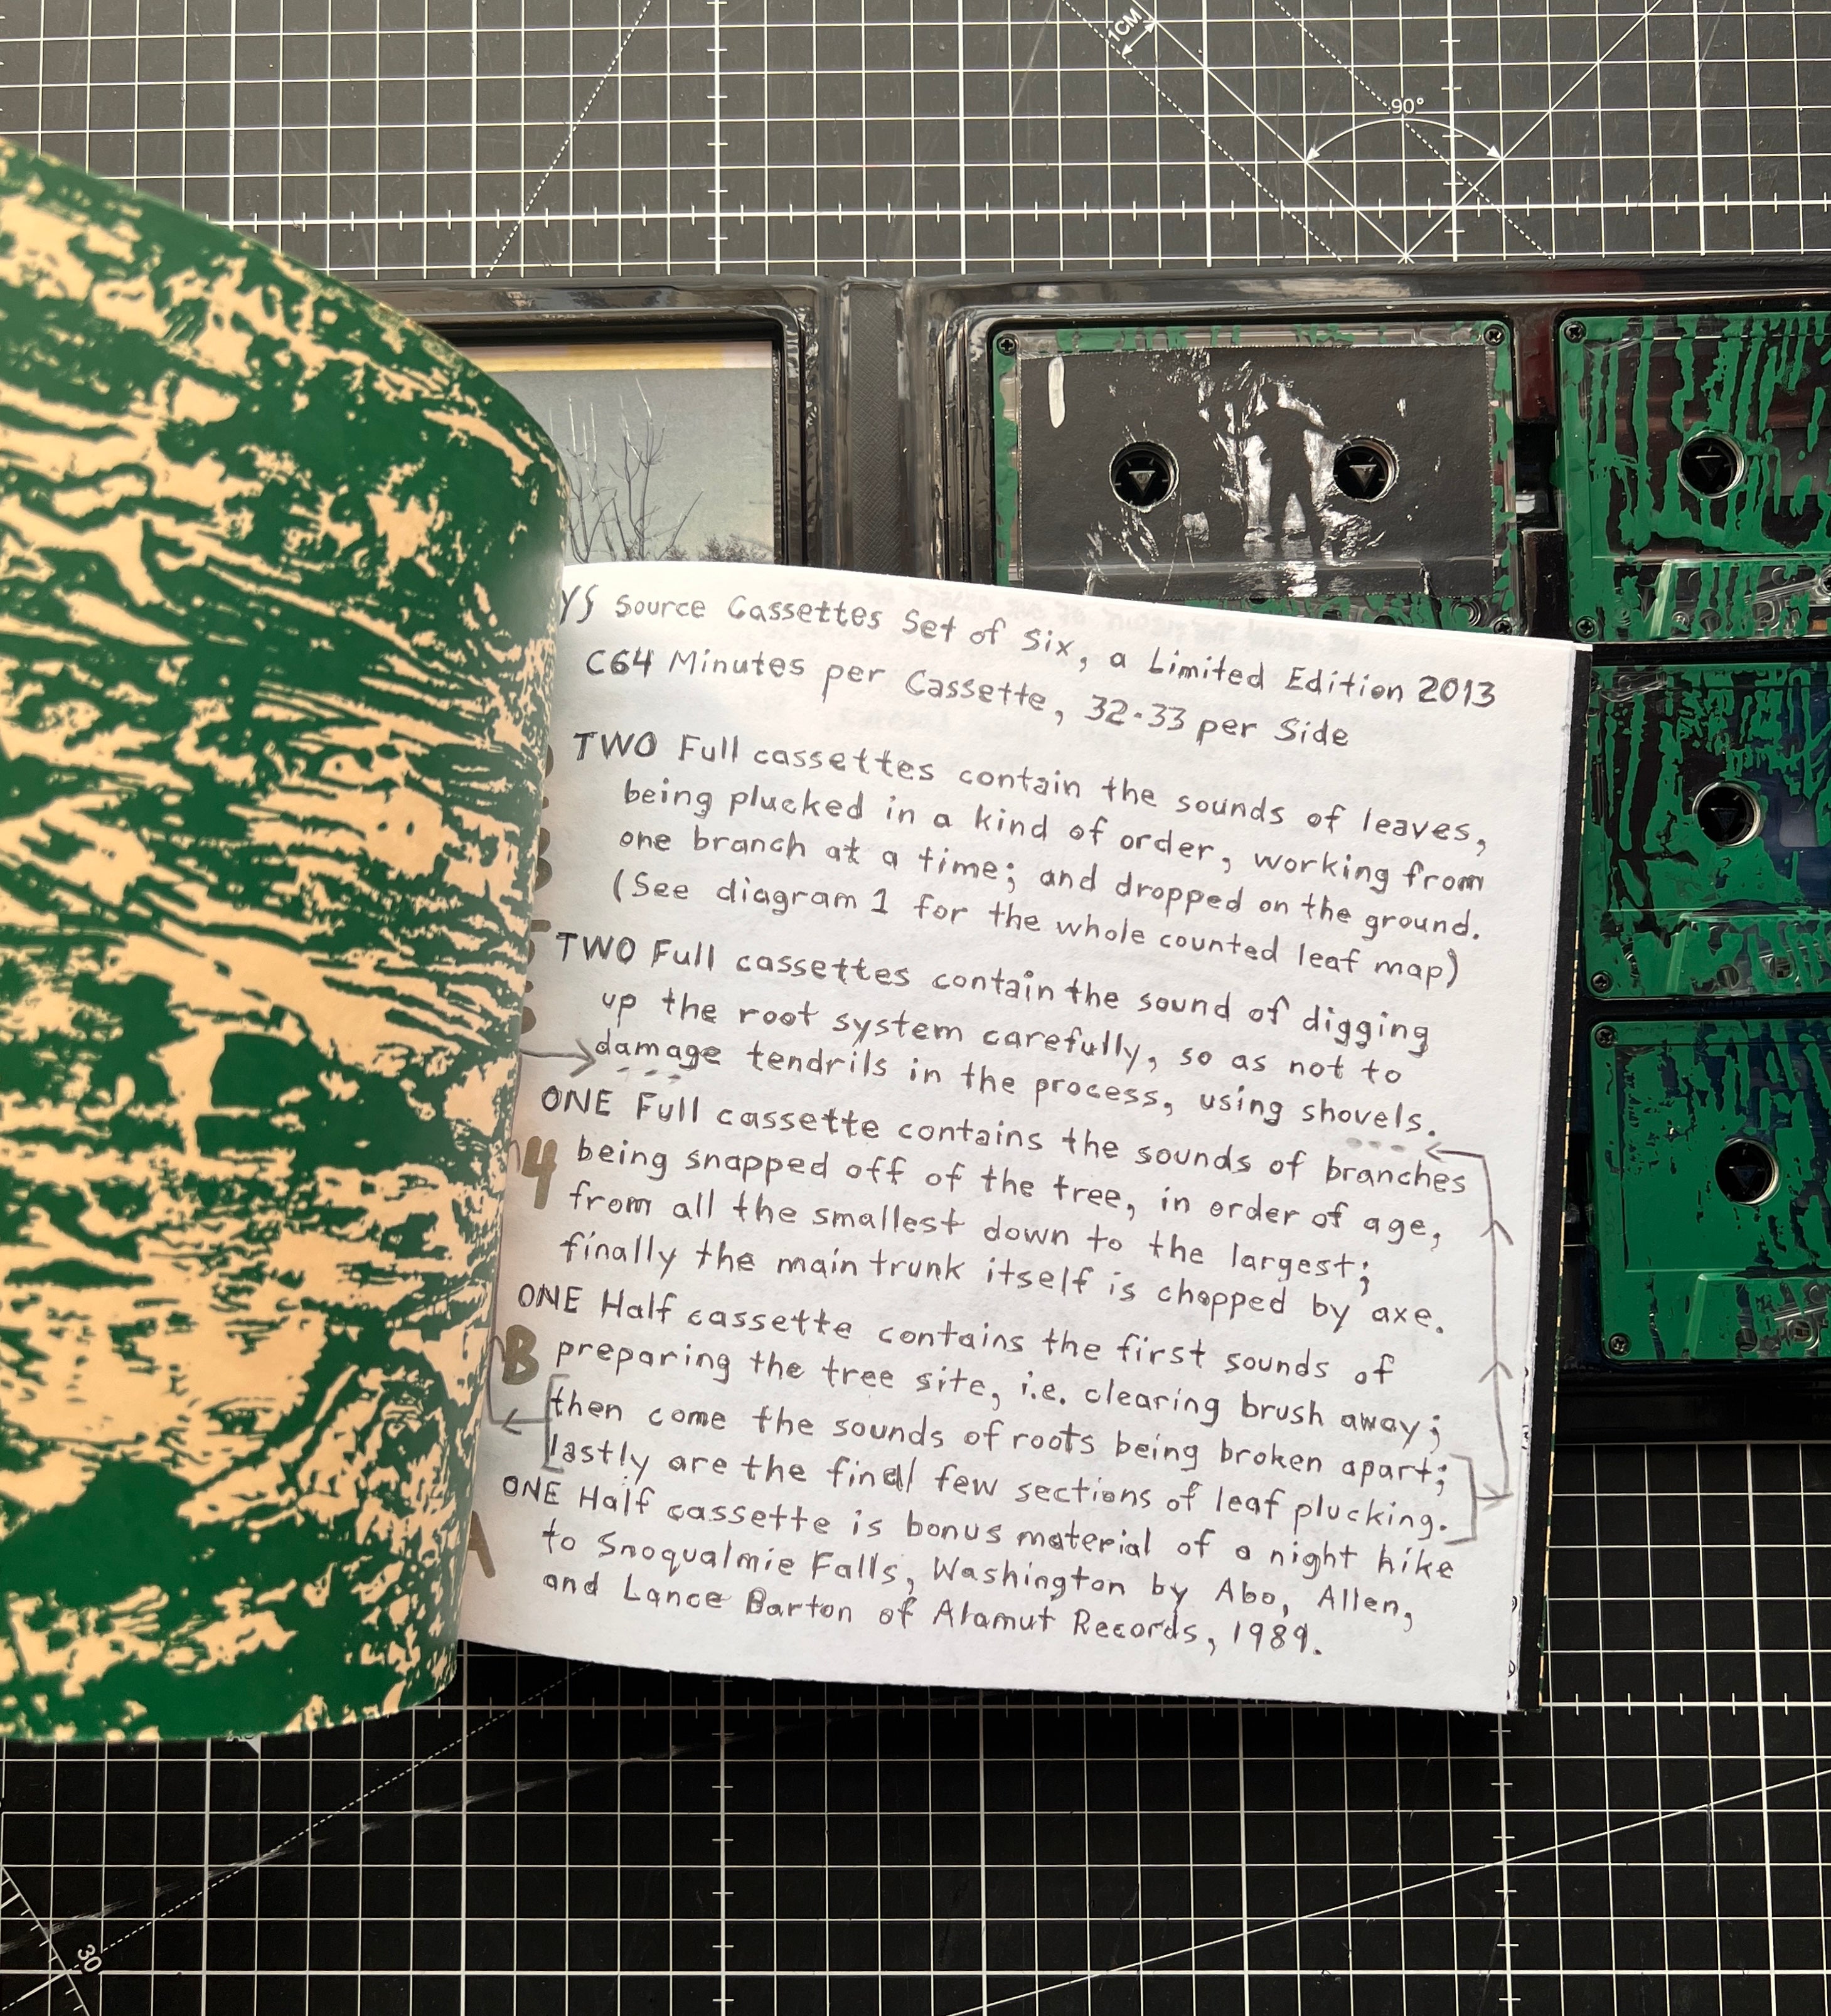 1CM
90°
YS Source Cassettes Set of Six, a Limited Edition 2013
C64 Minutes per Cassette, 32-33 per Side
TWO Full cassettes contain the sounds of leaves,
being plucked in a kind of order, working from
one branch at a time; and dropped on the ground.
(See diagram 1 for the whole counted leaf map)
TWO Full cassettes contain the sound of digging
up the root system carefully, so as not to
damage tendrils in the process, using shovels.
ONE Full cassette contains the sounds of branches
4 being snapped off of the tree, in order of age,
from all the smallest down to the largest;
finally the main trunk itself is chopped by axe.
ONE Half cassette contains the first sounds of
B preparing the tree site, i.e. clearing brush away;
then come the sounds of roots being broken apart;
lastly are the final few sections of leaf plucking.
ONE Half cassette is bonus material of a night hike
A to Snoqualmie Falls, Washington by Abo, Allen,
and Lance Barton of Alamut Records, 1989.
30